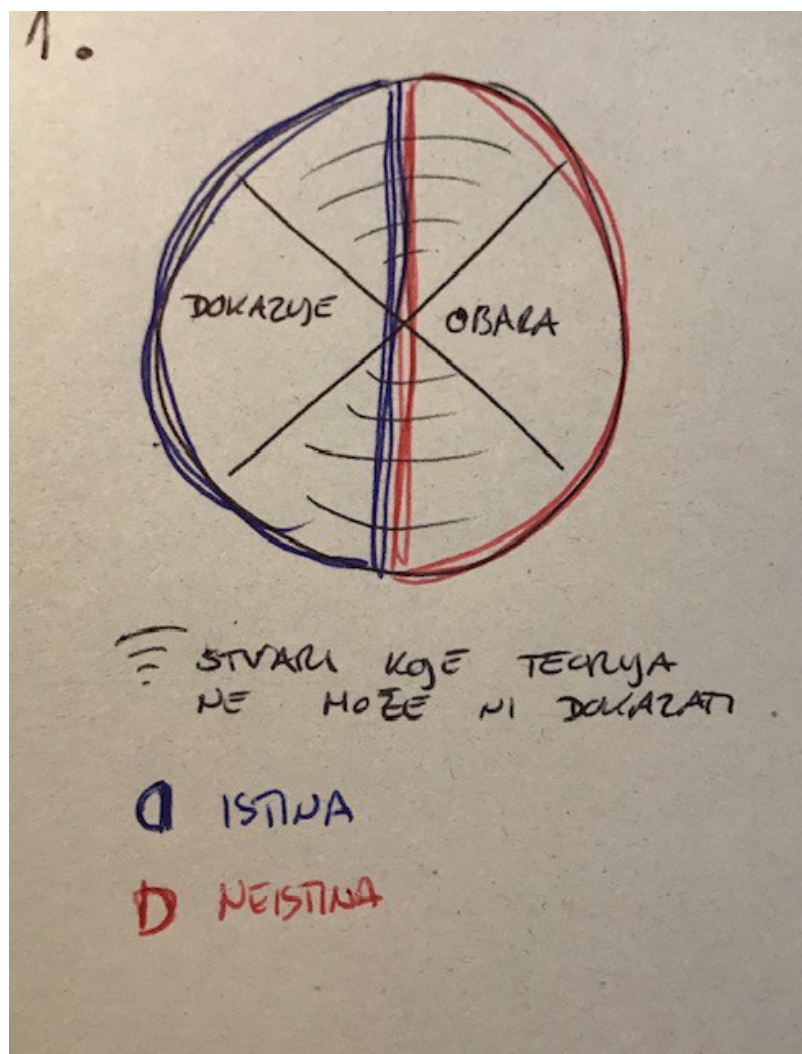 1.
DOKAZUJE
OBARA
STVARI KOJE TEORIJA
NE MOŽE NI DOKAZATI
ISTINA
NEISTINA